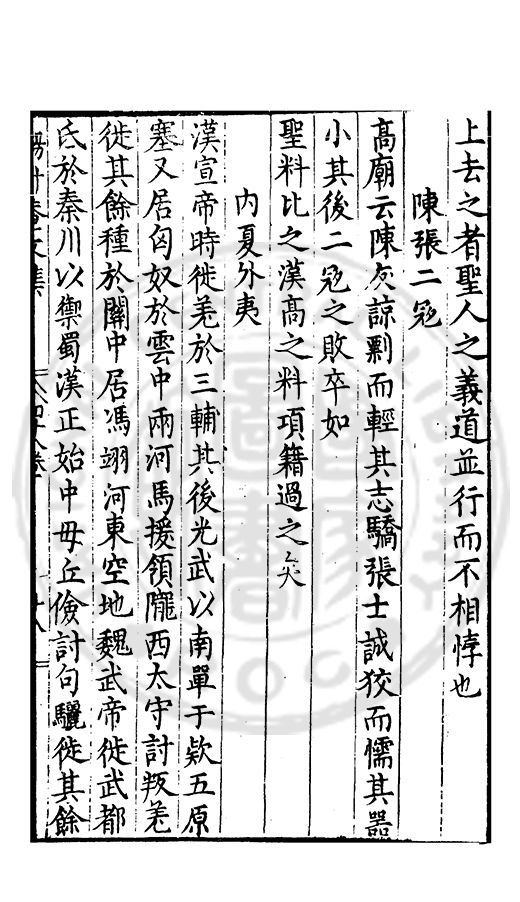 上去之者聖人之義道並行而不相悖也
陳張二宼
髙廟云陳友諒剽而輕其志驕張士誠狡而懦其器
小其後二宼之敗卒如
聖料比之漢髙之料項籍過之矣
内夏外夷
漢宣帝時徙羌於三輔其後光武以南單于欵五原
塞又居匈奴於雲中兩河馬援領隴西太守討叛羌
徙其餘種於關中居馮翊河東空地魏武帝徙武都
氐於秦川以禦蜀漢正始中毋丘儉討句驪徙其餘